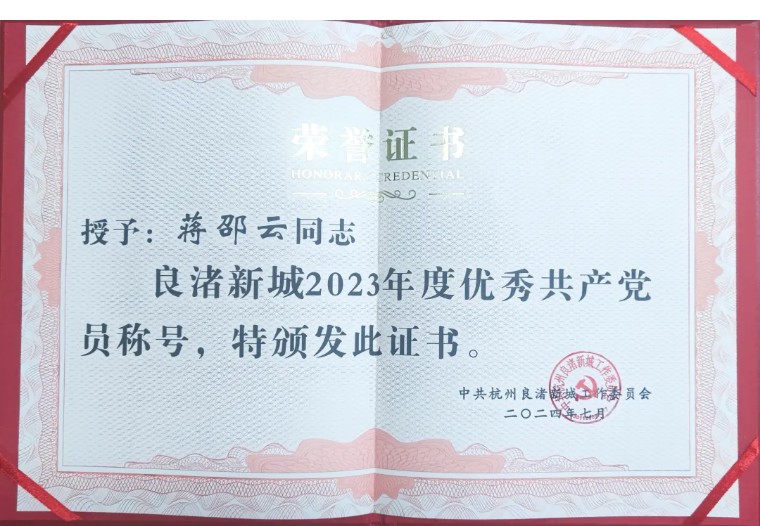 荣誉证书
HONORARY CREDENTIAL
授予：蒋邵云同志
良渚新城2023年度优秀共产党
员称号，特颁发此证书。
中共杭州良渚新城工作委员会
二〇二四年七月
中共杭州良渚新城工作委员会